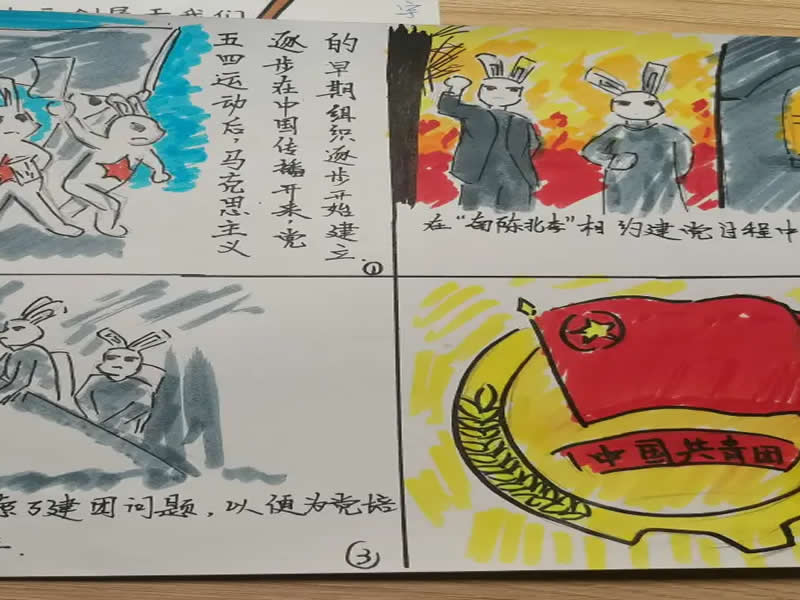 五四运动后,马克思主义
逐步在中国传播开来,党
的早期组织逐步开始建立.
①
在"南陈北李"相约建党过程中
虑了建团问题,以便为党培
③
中国共青团